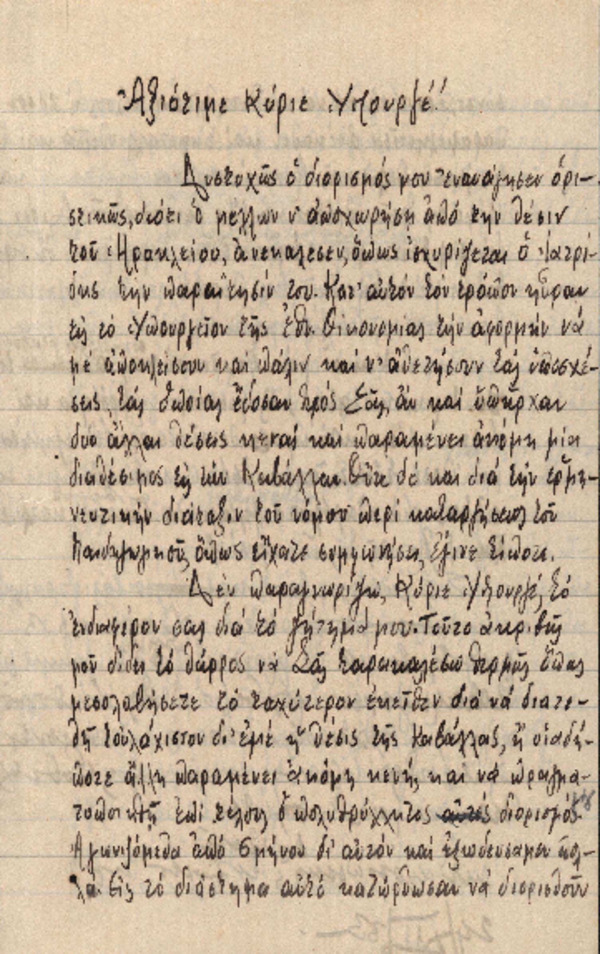 Ἀξιότιμε Κύριε Ὑπουργέ!
Δυστυχῶς ὁ διορισμός μου ἐναυάγησεν ὁρι-
στικῶς, διότι ὁ μέλλων ν' ἀποχωρήση ἀπό τήν θέσιν
τοῦ Ἡρακλείου, ἀνεκάλεσεν, ὅπως ἰσχυρίζεται ὁ Ἰατρί-
δης τήν παραίτησίν του. Κατ' αὐτόν τόν τρόπον ηὗραν
εἰς τό Ὑπουργεῖον τῆς Ἐθν. Οἰκονομίας τήν ἀφορμήν νά
μέ ἀποκλείσουν καί πάλιν καί ν' ἀθετήσουν τάς ὑποσχέ-
σεις, τάς ὁποίας ἔδοσαν πρός Σᾶς, ἄν καί ὑπῆρχαν
δύο ἄλλαι θέσεις κεναί καί παραμένει ἀκόμη μία
διαθέσιμος εἰς τήν Καβάλλαν. Οὔτε δέ καί διά τήν ἑρμη-
νευτικήν διάταξιν τοῦ νόμου περί καταργήσεως τοῦ
Παιδαγωγικοῦ, ὅπως εἴχατε συμφωνήσει, ἔγινε τίποτε.
Δέν παραγνωρίζω, Κύριε Ὑπουργέ, τό
ἐνδιαφέρον σας διά τό ζήτημά μου. Τοῦτο ἀκριβῶς
μοῦ δίδει τό θάρρος νά Σᾶς παρακαλέσω θερμῶς ὅπως
μεσολαβήσετε τό ταχύτερον ἐκεῖθεν διά νά διατε-
θῆ τουλάχιστον δι' ἐμέ ἡ θέσις τῆς Καβάλλας, ἤ οἱαδή-
ποτε ἄλλη παραμένει ἀκόμη κενή, καί νά πραγμα-
τοποιηθῆ ἐπί τέλους ὁ πολυθρύλλητος διορισμός
Ἀγωνιζόμεθα ἀπό 6μήνου δι' αὐτόν καί ἐξωδεύσαμεν πολ-
λά. Εἰς τό διάστημα αὐτό κατώρθωσαν νά διορισθοῦν